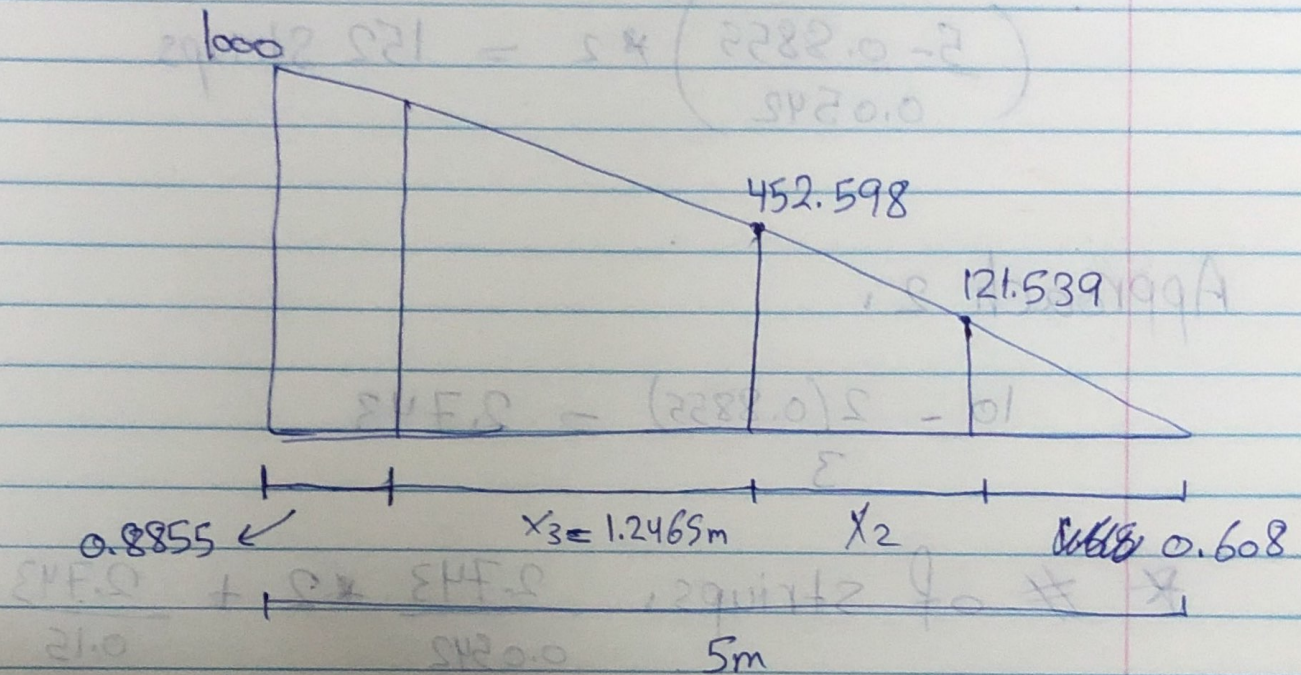 1000
452.598
121.539
0.8855
x3 = 1.2465m
X2
0.608
5m